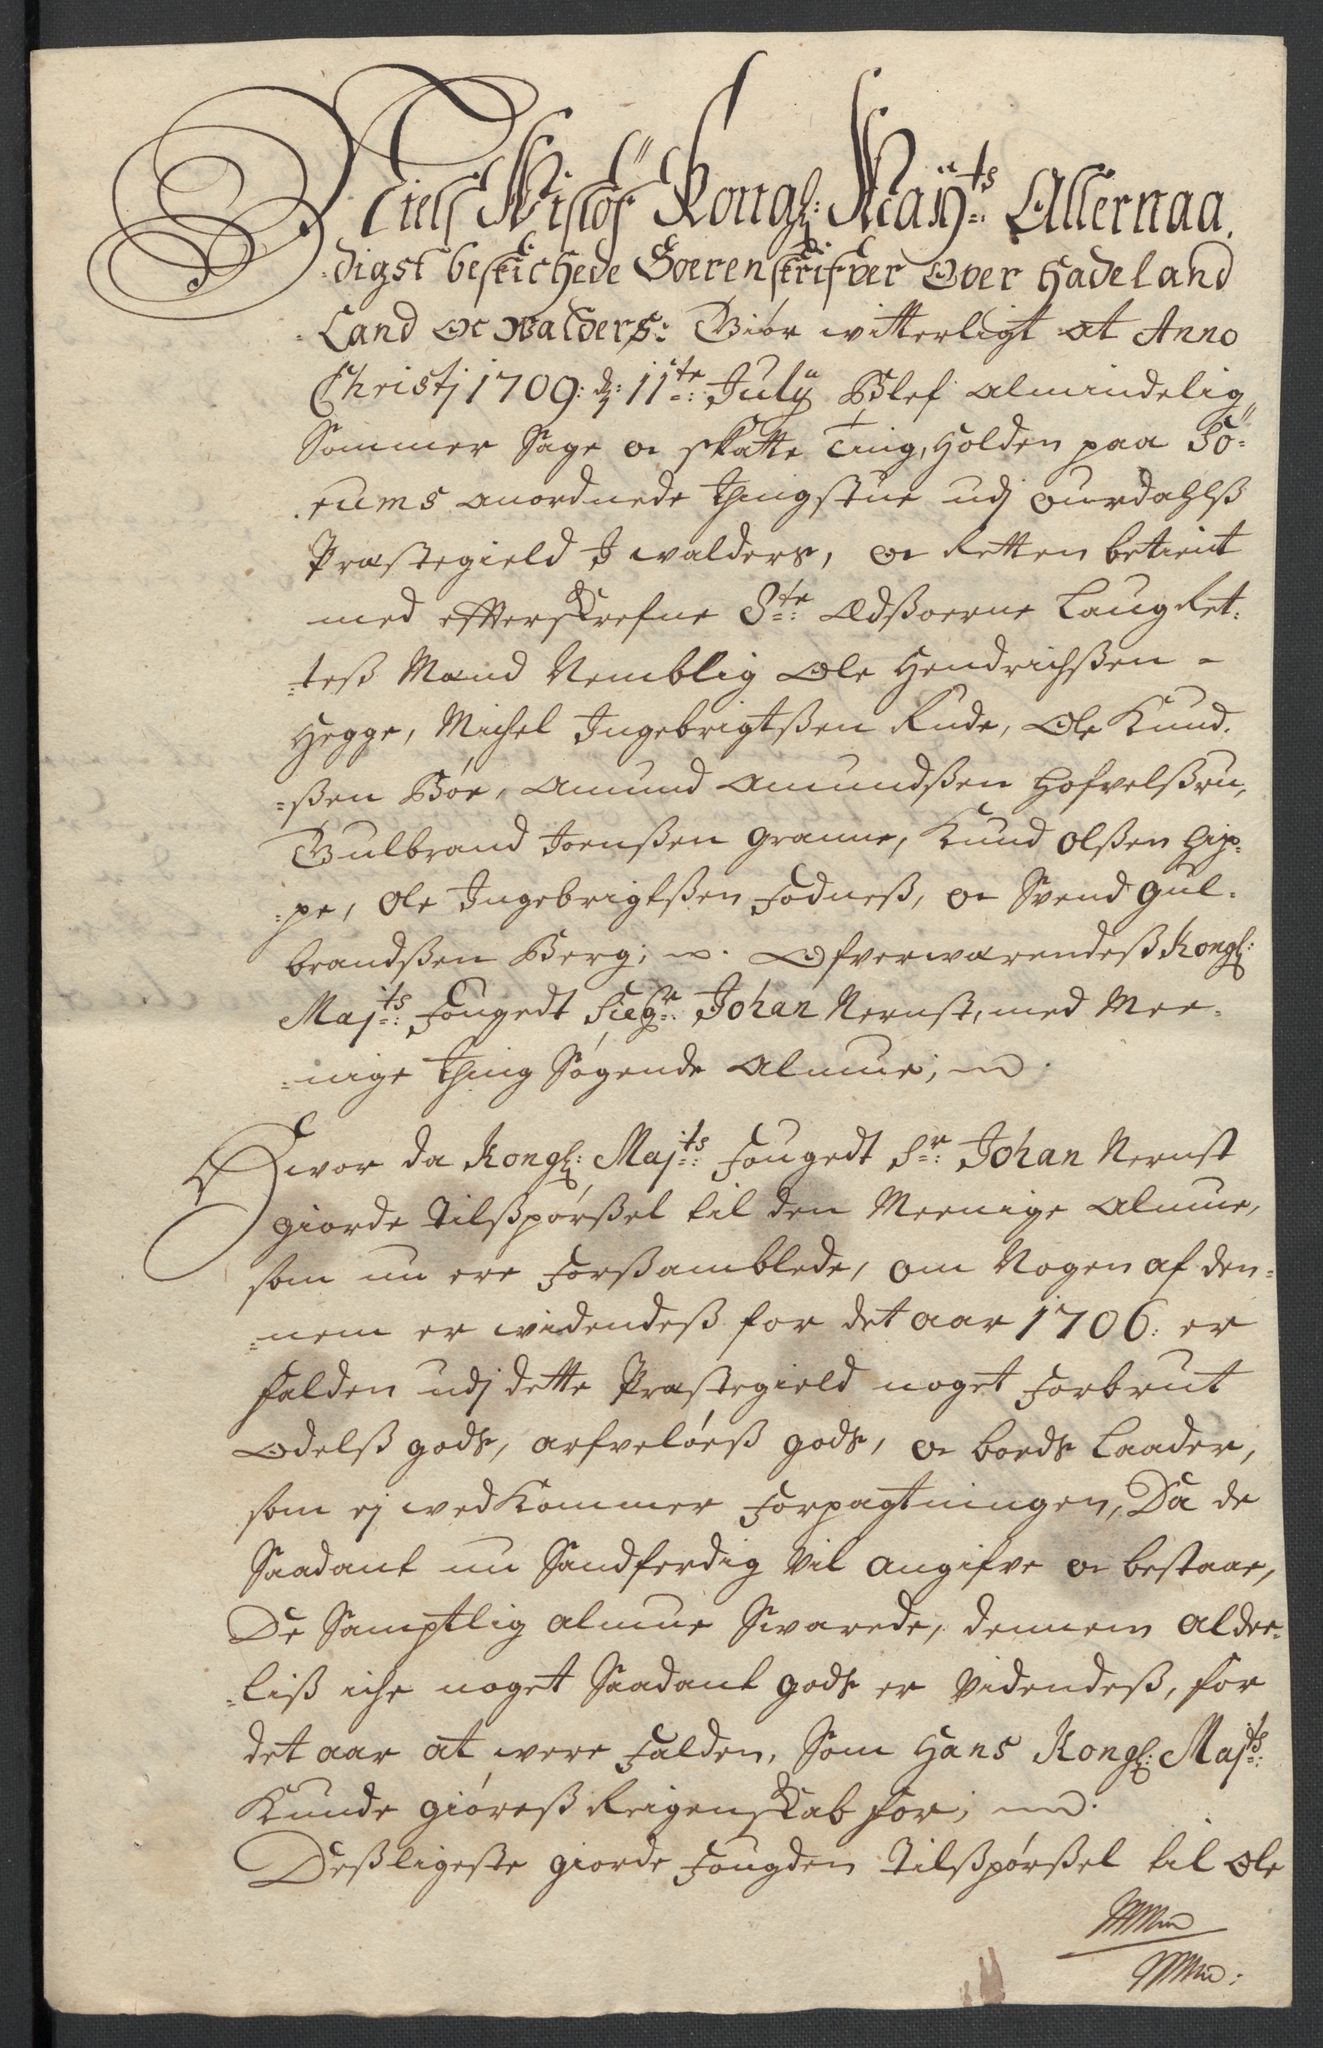 Niels Wislöf Kongl: Maÿts: Allernaa¬
digst beskichede Soerenskrifver Over Hadeland
Land Oc walders: Giör witterligt at Anno
Christj 1709: d: 11te: Julÿ Blef Almindelig
Sommer Sage oc skatte Ting, Holden paa Sö¬
rums anordnede thingstue udj ourdahlß
Præstegield I walders, oc Retten betient
med efterskrefne 8te: Edßoerne Laugret¬
teß Mænd Nemblig Ole Hendrichßen
Hegge, Michel Ingebrigtßen Rude, Ole Knud¬
ßen Böe, Amund Amundßen Hofvelßru,
Gulbrand Joenßen Granne, Knud Olßen Hip¬
pe, Ole Ingebrigtßen Fodneß, oc Svend Gul¬
brandßen Berg; Ofverwærendeß Kongl:
Majts: Fougedt Sieg.r: Johan Nernst, med Mee¬
nige thing Søgende Almue;
Hwor da Kongl: Majts: Fougedt Sr: Johan Nernst
giorde Tilßpørßel til den Meenige Almue,
som nu ere Forßamblede, om Nogen af den¬
nem er widendeß for det aar 1706: er
falden udj dette Præstegield noget Forbrut
Odelß gods, arfveløeß gods, oc boeds Laader,
som ej wedKommer Forpagtningen, Da de
Saadant nu Sandferdig Vil angifve oc bestaae,
De Samptlig almue Swarede, dennem alde¬
liß iche noget Saadant gods er Videndeß, for
det aar at were Falden, Som Hans Kongl: Majts:
Kunde giøreß Reigenskab for;
Deßligeste giorde Fougden Tilßpørßel til Ole